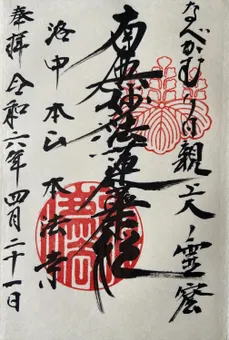 なべかむり日親上人ノ霊窟
南無妙法蓮華経
洛中本山 本法寺
奉拝 令和六年四月二十一日